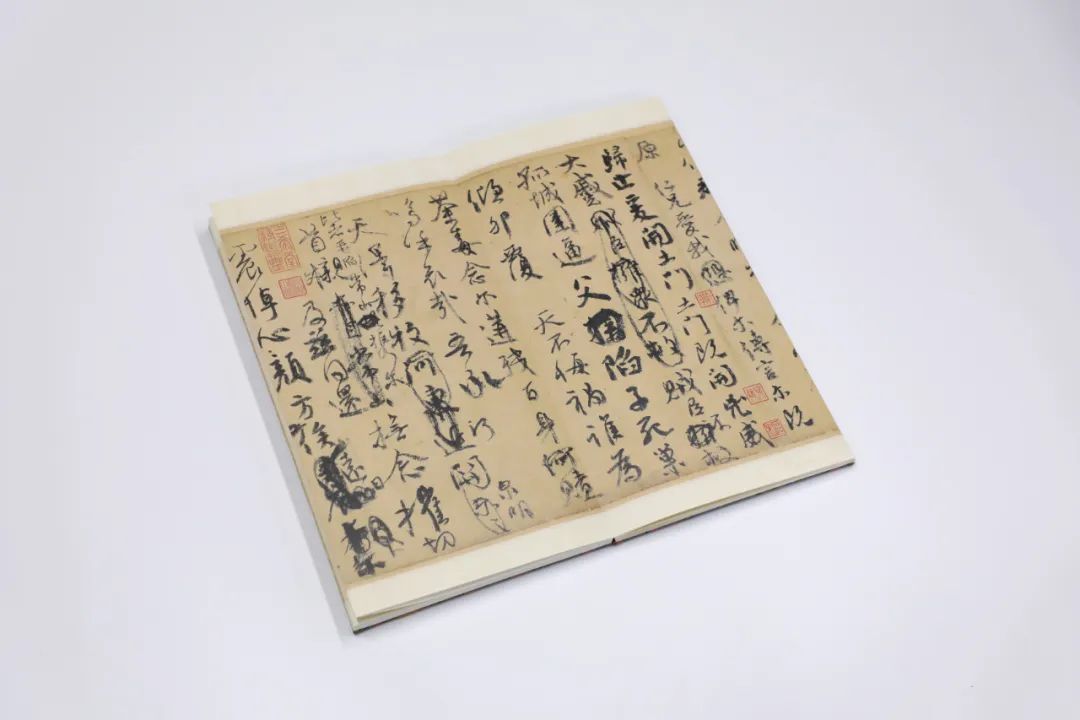 原 仁兄愛我 俾爾傳言 爾既
歸止 爰開土門 土門既開 兇威
大蹙 賊臣擁眾不救 賊臣不救
孤城圍逼 父陷子死 巢
傾卵覆 天不悔禍 誰為
荼毒 念爾遘殘 百身何贖
嗚乎哀哉 吾承
天澤 移牧河關 泉明
比者再陷常山 攜爾
首櫬 及茲同還 撫念摧切
震悼心顏 方俟遠日